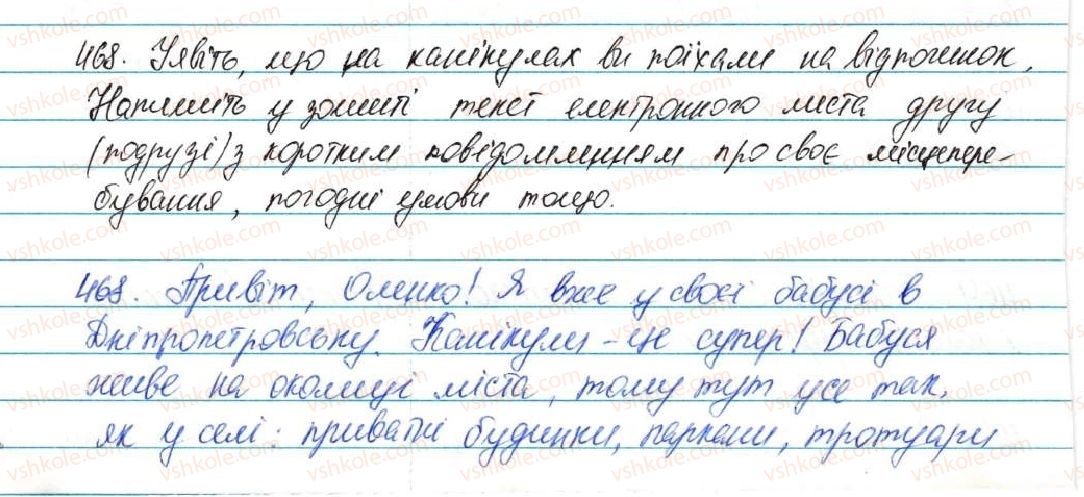 468. Уявіть, що на канікулах ви поїхали на відпочинок.
Напишіть у зошиті текст електронного листа другу
(подрузі) з коротким повідомленням про своє місцепере-
бування, погодні умови тощо.
468. Привіт, Оленко! Я вже у своєї бабусі в
Дніпропетровську. Канікули - це супер! Бабуся
живе на околиці міста, тому тут усе так,
як у селі: приватні будинки, паркани, тротуари